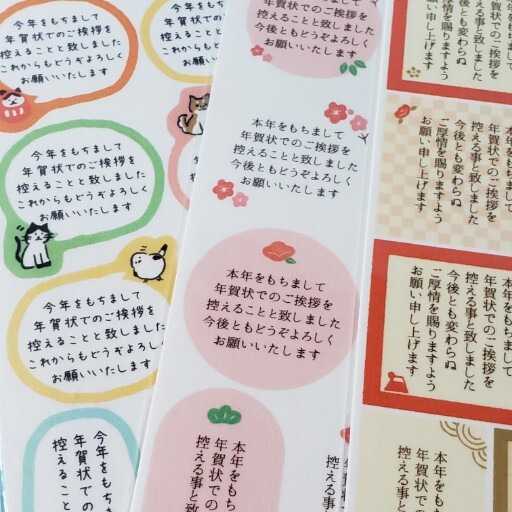 今年をもちまして
年賀状でのご挨拶を
控えることと致しました
これからもどうぞよろしく
お願いいたします
控え
これから
お願いいたします
今年をもちまして
年賀状でのご挨拶を
控えることと致しました
これからもどうぞよろしく
お願いいたします
今年をもちまして
年賀状でのご挨拶を
控えることと致しました
これからもどうぞよろしく
お願いいたします
今年をもち
年賀状での
控えること
控えることと致しました
今後ともどうぞよろしく
お願いいたします
本年をもちまして
年賀状でのご挨拶を
控えることと致しました
今後ともどうぞよろしく
お願いいたします
本年をもちまして
年賀状でのご挨拶を
控えることと致しました
今後ともどうぞよろしく
お願いいたします
本年をもち
年賀状での
控える事と
年賀状でのご挨拶を
控える事と致しました
今後とも変わらぬ
ご厚情を賜りますよう
お願い申し上げます
本年をもちまして
年賀状でのご挨拶を
控える事と致しました
今後とも変わらぬ
ご厚情を賜りますよう
お願い申し上げます
本年をもちまして
年賀状でのご挨拶を
控える事と致しました
今後とも変わらぬ
ご厚情を賜りますよう
お願い申し上げます
本年をもち
年賀状での
控える事と